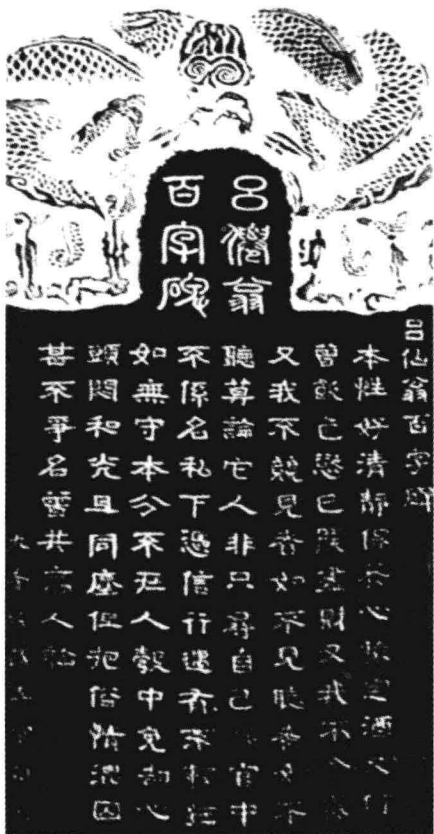 吕僊翁
百字碑
吕仙翁百字碑
本性好清靜保養心猿定酒又何
曾飲色慾已罷盡財又我不貪
又我不競見者如不見聽者如不
聽莫論它人非只尋自己官中
不係名私下憑信行遇有不輕狂
如無守本分不在人彀中免却心
頭悶和光且同塵但把俗情混因
甚不爭名曾共高人論